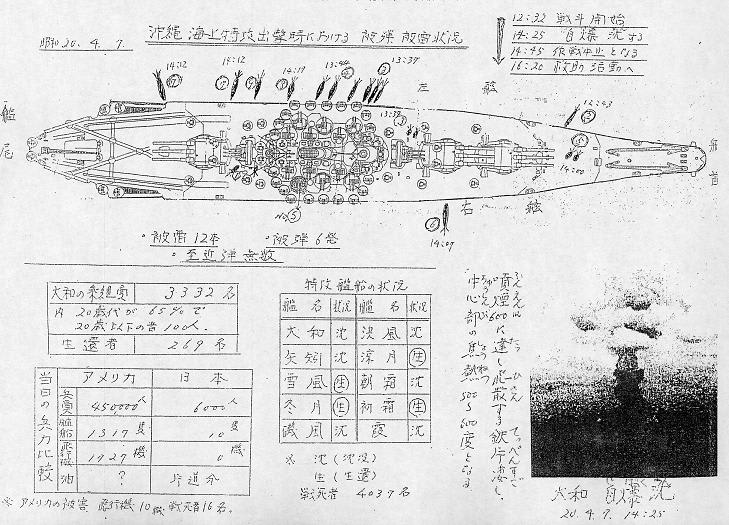 昭和20. 4. 7.
沖縄海上特攻出撃時における被弾被雷状況
12:32 戦斗開始
14:25 自爆沈する
14:45 作戦中止となる
16:20 救助活動へ
14:12
14:12
14:17
13:44
13:37
左舷
12:43
⑦
⑦
⑦
②
③
13:39
艦尾
艦首
14:00
No.⑤
⑥
右舷
14:07
・被雷12本 ・被弾6発
・至近弾無数
大和の乗組員 3332名
内 20歳代が65%で
20歳以下の者100人.
生還者 269名
特攻艦船の状況
艦名 状況 艦名 状況
大和 沈 浜風 沈
矢矧 沈 涼月 生
雪風 生 朝霜 沈
冬月 生 初霜 生
磯風 沈 霞 沈
※ 沈(沈没)
生(生還)
戦死者 4037名
当日の兵力比較
アメリカ 日本
兵員 450000人 6000人
艦船 1317隻 10隻
飛行機 1727機 0機
油 ? 片道分
※アメリカの被害 飛行機10機 戦死者16名.
中心部の焦熱500〜600度となる
大和 自爆沈
20. 4. 7. 14:25